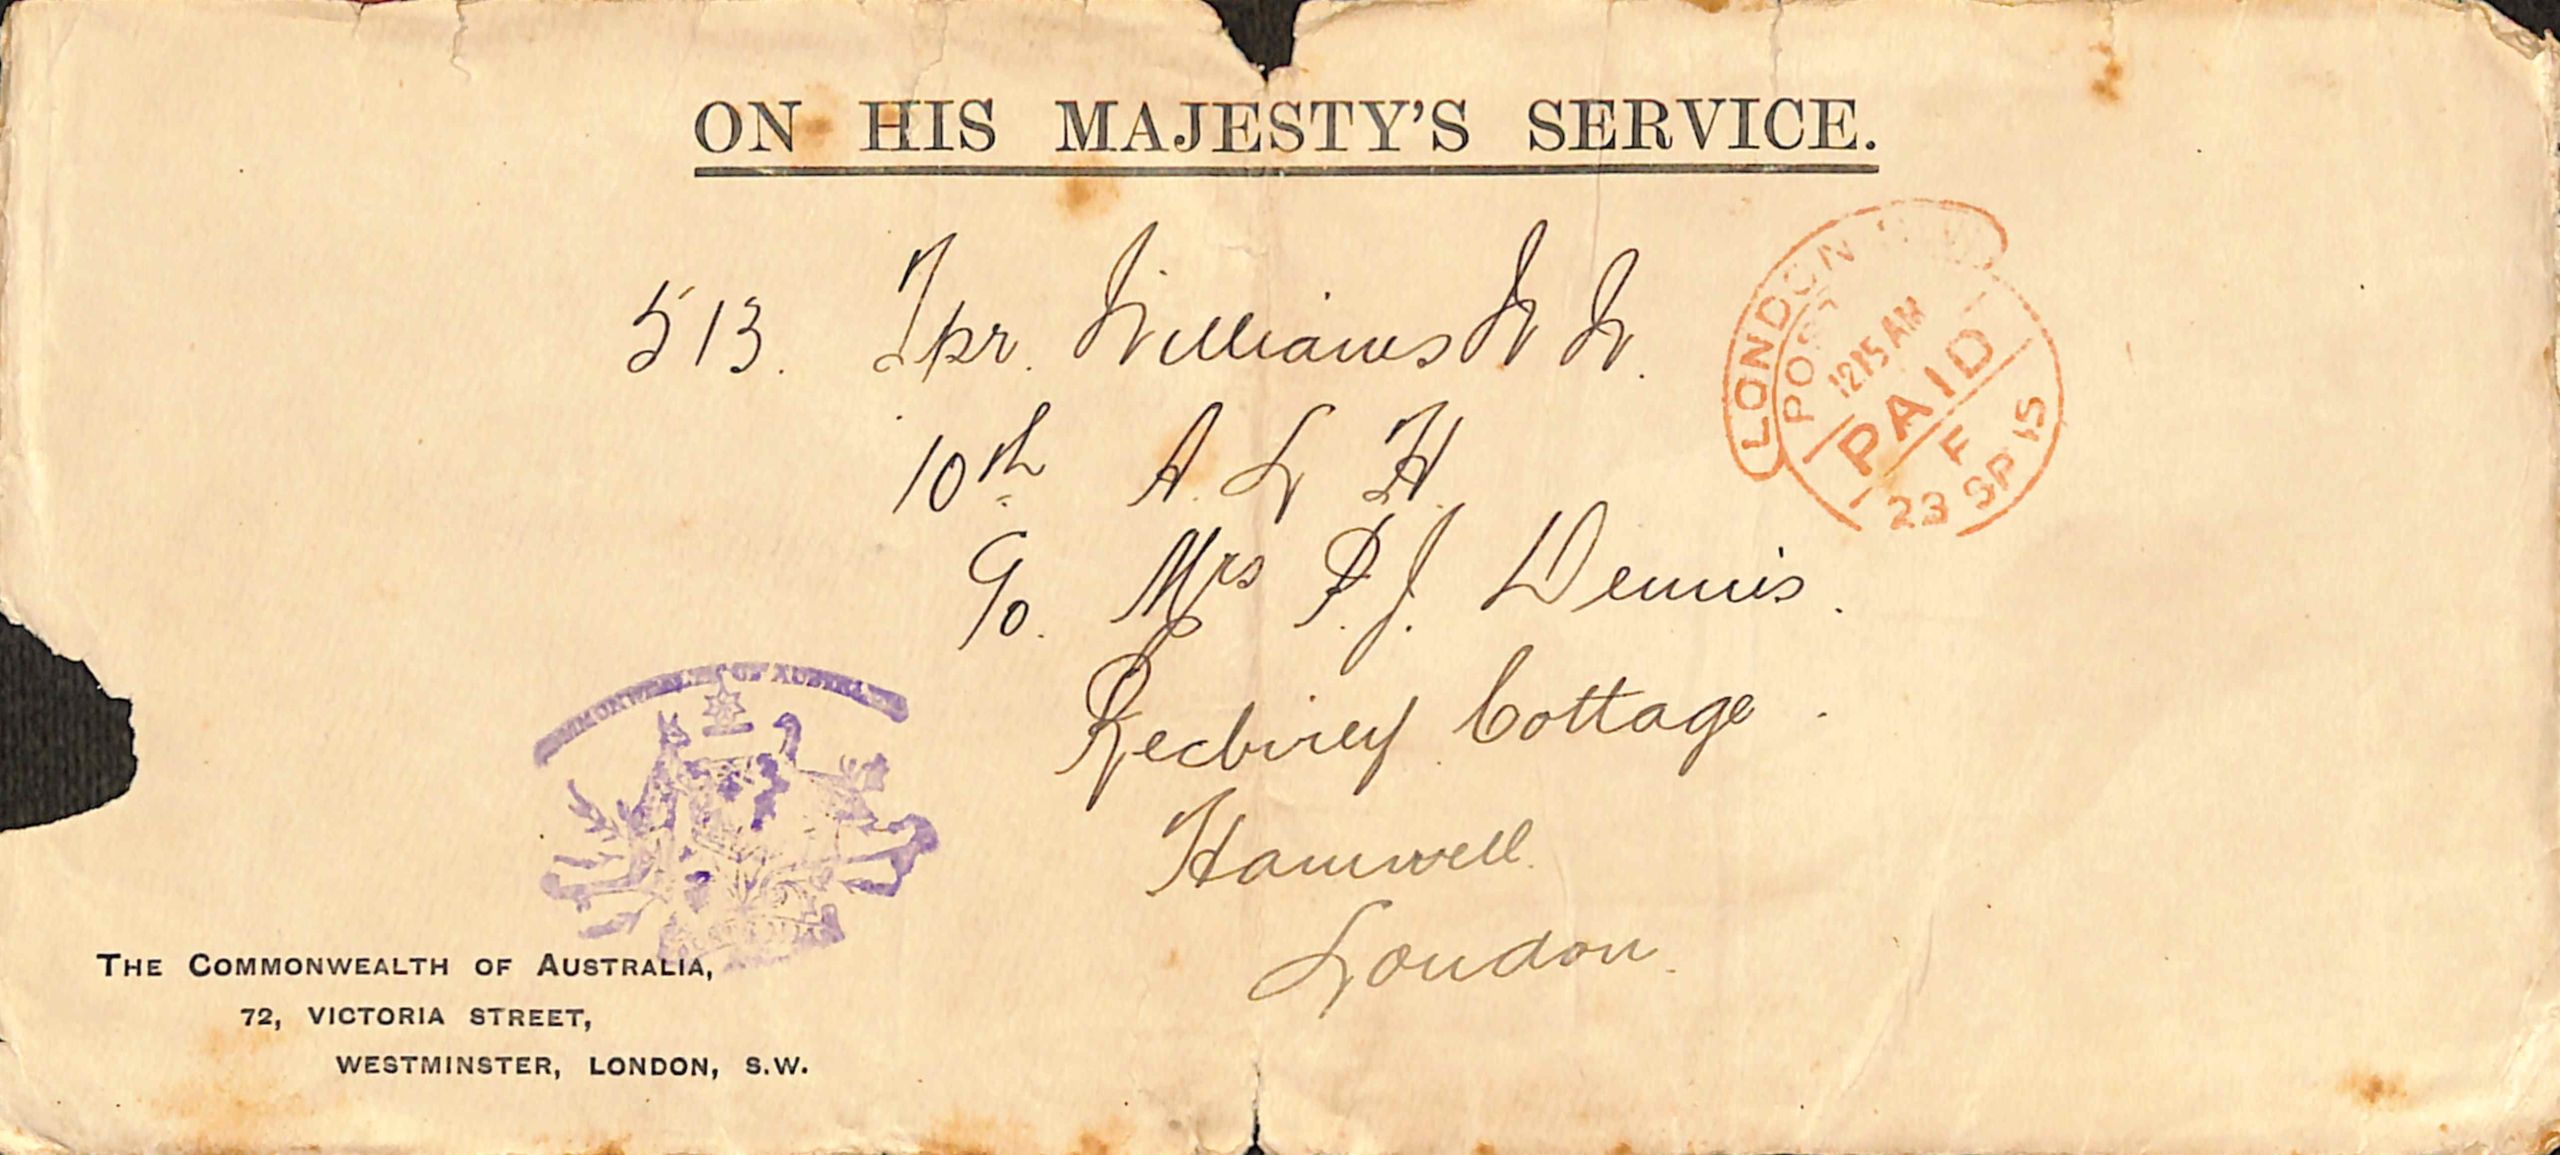 ON HIS MAJESTY'S SERVICE.
513. Tpr. Williams W W.
10th A. L H.
c/o. Mrs P. J. Dennis.
Cottage.
Hamwell.
London.
LONDON
POST
12.15 AM
PAID
F
23 SP 15
COMMONWEALTH OF AUSTRALIA
THE COMMONWEALTH OF AUSTRALIA,
72, VICTORIA STREET,
WESTMINSTER, LONDON, S.W.